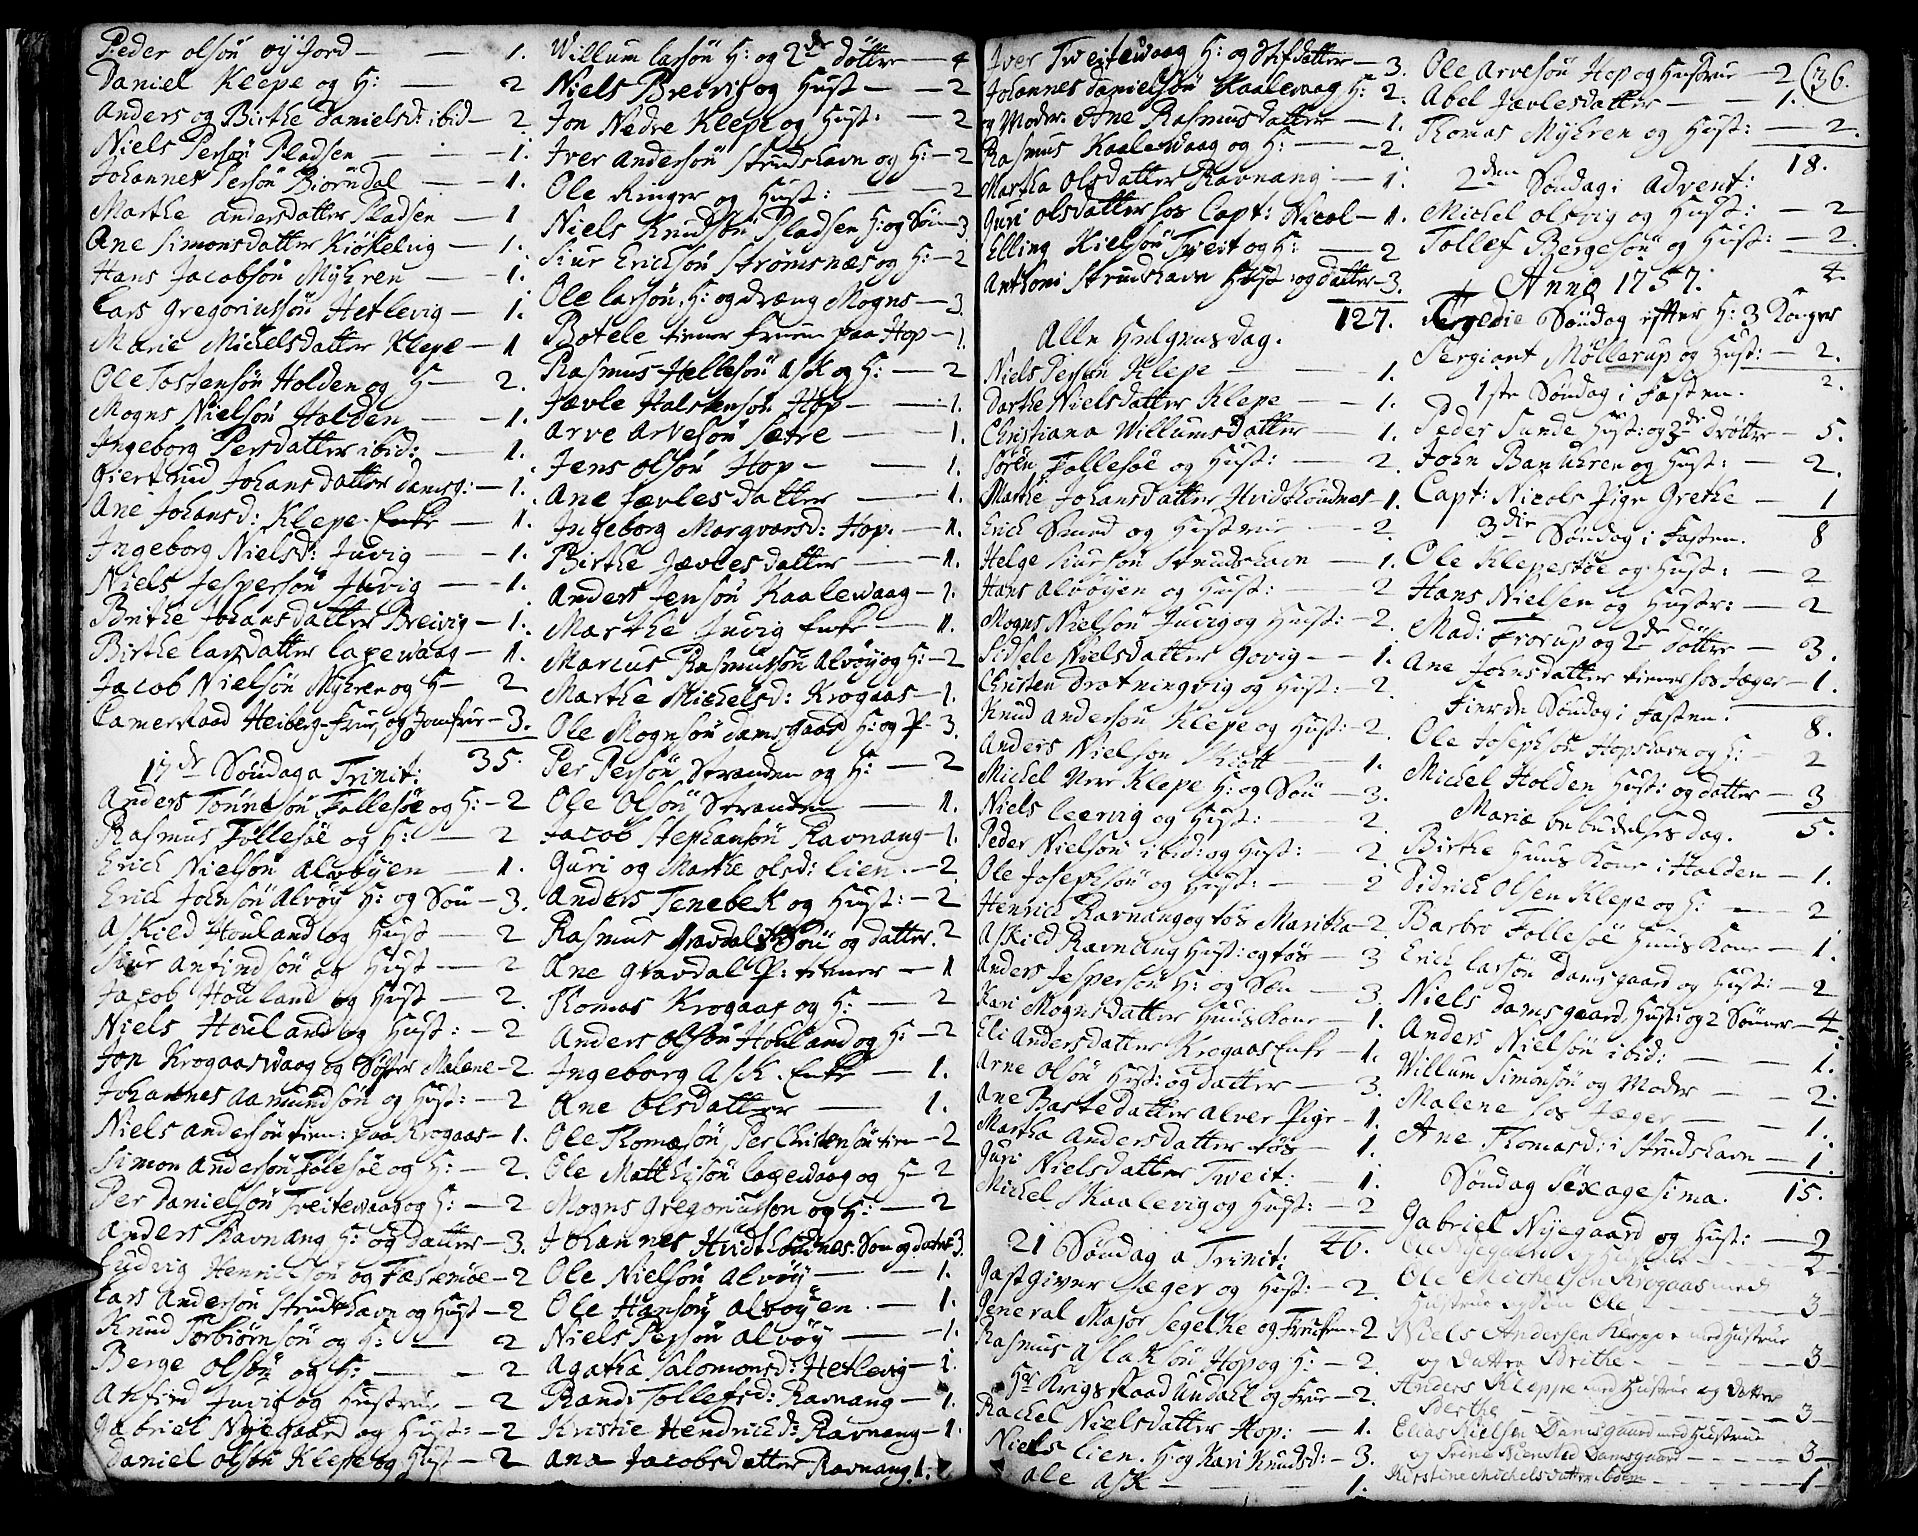 Peder olsøn øÿjord — — 1.
Daniel Klepe og H: — 2
Anders og Birthe Danielsd: ibid — 2
Niels Persøn Pladsen — — 1.
Johannes Persøn Biørndal — — 1.
Marthe andersdatter Pladsen — 1
Ane Simonsdatter Kiøkelvig — 1.
Hans Jacobsøn Mÿhren — 1.
Lars Gregoriussøn Hetlevig — 1.
Marie Michelsdatter Klepe — 1
Ole Tostensøn Holden og H — 2.
Mogns Nielsøn Holden — 1.
Ingeborg Persdatter ibid: — 1.
Giertrud Johansdatter damsg: — 1.
Ane Johansd: Klepe Enke — 1.
Ingeborg Nielsd: Juvig — 1.
Niels Jespersøn Juvig — 1.
Birthe Johansdatter Breivig — 1.
Birthe larsdatter laxewaag — 1.
Jacob Nielsøn Mÿhren og H — 2
Camerraad Heiberg Frue og Jomfrue — 3.
35.
17de Søndag a Trinit:
Anders Tønnesøn Follesøe og H: — 2
Rasmus Follesøe og H: — 2
Erich Nielsøn Alvøÿen — 1.
Erich Johnsøn Alvøÿ H: og Søn — 3.
Askied Houland og Hust — 2
Siur Anfindsøn og Hust — 2
Jacob Houland og Hust — 2.
Niels Houland og Hust: — 2
Jon Krogaasvaag og Søster Malene — 2
Johannes Aamundsøn og Hust: — 2
Niels andersøn tien: paa Krogaas — 1.
Simon andersøn Folesøe og H: — 2.
Per Danielsøn Treitewaag og H: — 2
Anders Ravnang H: og datter — 3.
Ludvig Henrichsøn og Fæstemøe — 2
Lars Andersøn Strudshavn og Hust — 2
Knud Torbiørnsøn og H: — 2
Berge Olsøn og H: — 2
Anfind Juvig og Hustrue — 2
Gabriel Nÿegaard og Hust: — 2
Daniel olsøn Klepe og Hust — 2
Willum larsøn H: og 2de døttre — 4
Niels Breivig og Hust — 2
Jon Nedre Klepe og Hust: — 2
Iver Andersøn Strudshavn og H: — 2
Ole Ringer og Hust: — 2
Niels Knudsøn Pladsen H: og Søn — 3
Siur Erichsøn Strømsnæs og H: — 2
Ole larsøn, H: og dræng Mogns — 3.
Botele tiener Fruen paa Hop — 1.
Rasmus Hellesøn Ask og H: — 2
Jævle Halstensøn Hop — 1.
Arve Arvesøn Sætre — 1.
Jens olsøn Hop — — 1.
Ane Jævlesdatter — 1.
Ingeborg Margvarsd: Hop. — 1.
Birthe Jævlesdatter — 1.
Anders Jensøn Kaalewaag — 1.
Marthe Juvig Enke — 1.
Marcus Rasmussøn Alvøÿ og H: — 2
Marthe Michelsd: Krogaas — 1.
Ole Mognsøn damsgaard H: og P — 3.
Per Persøn Stranden og H: — 2
Ole Olsøn Stranden — 1.
Jacob Stephansøn Ravnang — 1.
Guri og Marthe olsd: lien. — 2.
Anders Tenebek og Hust: — 2
Rasmus Gravdal Søn og datter. 2
Ane Gravdal P: tiener — 1
Thomas Krogaas og H: — 2
Anders olsøn Houland og H: — 2
Ingeborg Ask. Enke — 1.
Ane Olsdatter — 1.
Ole Thomæsøn, Per Christensøn tien — 2
Ole Matthisøn laxewaag og H — 2
Mogns Gregoriussøn og H: — 2
Johannes Hvidthoudnes. Søn og datter 3.
Ole Nielsøn Alvøÿ — 1.
Ole Hansøn Alvøÿen. — 1.
Niels Persøn Alvøÿ — 1.
Agatha Salomonsd: Hetlevig — 1.
Randi Tollefsd: Ravnang — 1.
Kristie Hendrichd: Ravnang — 1.
Ana Jacobsdatter Ravnang. 1.
Iver Tveitewaag H: og Stifdatter — 3.
Johannes danielsøn Kaalewaag H: 2.
og Moder. Ane Rasmusdatter — 1.
Rasmus Kaalewaag og H: — 2.
Martha Olsdatter Ravnang — 1.
Guri olsdatter hos Capt: Nicol — 1.
Elling Nielsøn Tveit og H: — 2
Anthoni Strudshavn Hust: og datter — 3.
127.
Alle Helgens dag.
Niels Persøn Klepe — 1.
Dorthe Nielsdatter Klepe — 1.
Christiana Willumsdatter — 1.
Søren Follesøe og Hust: — 2.
Marthe Johansdatter Hvidthoudnes — 1.
Erich Smed og Hustrue — 2.
Helge Siursøn Strudshavn — 1.
Hans Alvøÿen og Hust: — 2
Mogns Nielsøn Juvig og Hust: — 2.
Sidsele Nielsdatter Govig — 1.
Christen Drotningvig og Hust: — 2.
Knud andersøn Klepe og Hust: — 2.
Anders Nielsøn Skiøtt — 1.
Michel Nerr Klepe H: og Søn — 3.
Niels leervig og Hust: — 2.
Peder Nielsøn ibid: og Hust: — 2.
Ole Josephsøn og Hust: — 2
Henrich Ravnang og tøs Maritha — 2.
Askild Ravnang Hust: og tøs — 3
Anders Jespersøn H: og Søn — 3.
Kari Mognsdatter Huus Kone — 1.
Eli Andersdatter Krogaas Enke — 1.
Arne Olsøn Hust: og datter — 3.
Ane Bastedatter Alver Pige — 1.
Martha Andersdatter tøs — 1.
Guri Nielsdatter Tweit: — 1.
Michel Skaalevig og Hust: — 2
46.
21 Søndag a Trinit:
Gastgiver Jæger og Hust: — 2.
General Major Segelke og Fruen — 2
Rasmus Aslaksøn Hop og H: — 2.
Hr Krigsraad Undahl og Frue — 2.
Rachel Nielsdatter Hop: — 1.
Niels Lien. H: og Kari Knudsd: — 3.
Ole Ask — — 1.
Ole Arvesøn Hop og Hustrue — 2
36.
Abel Jævlesdatter — 1.
Thomas Mÿhren og Hust: — 2.
18.
2den Søndag i Advent:
Michel Olsvig og Hust: — 2
Tollef Bergesøn og Hust: — 2.
4.
Anno 1757.
Tredie Søndag efter H: 3 Konger
Sergiant Møllerup og Hust: — 2.
2.
1ste Søndag i Fasten.
Peder Sunde Hust: og 3de døttre — 5.
John Banuhren og Hust: — 2.
Capt: Nicols Pige Grethe — 1
8
3die Søndag i Fasten.
Ole Klepestøe og Hust: — 2
Hans Nielsen og Hustr: — 2
Mad: Frorup og 2de døttre — 3.
Ane Johnsdatter tiener hos Jæger — 1.
8.
Fierde Søndag i Fasten.
Ole Josephsøn Hopshavn og H: — 2
Michel Holden Hust: og datter — 3
5.
Mariæ bebudelses dag.
Birthe Huus Kone i Holden — 1.
Didrich Olsen Klepe og H: — 2
Barbro Follesøe Huus Kone — 1.
Erich larsøn Damsgaard og Hust: — 2
Niels damsgaard Hust: og 2 Sønner — 4
Anders Nielsøn ibid: — 1.
Willum Simonsøn og Moder — 2.
Malene hos Jæger — 1.
Ane Thomasd: i Strudshavn — 1.
15.
Søndag Sexagesima.
Gabriel Nÿegaard og Hust: — 2
Ole Nÿegaard og Hustrue — 2
Ole Michelsen Krogaas med
Hustrue og Søn Ole — 3
Niels Andersen Kleppe med Hustrue
og Datter Brithe — 3
Anders Kleppe med Hustrue og Datter
Berthe — 3
Elias Nielsen Damsgaard med Hustrue
og Trine Damsgaard — 3
Kirstine Michelsdatter — 1